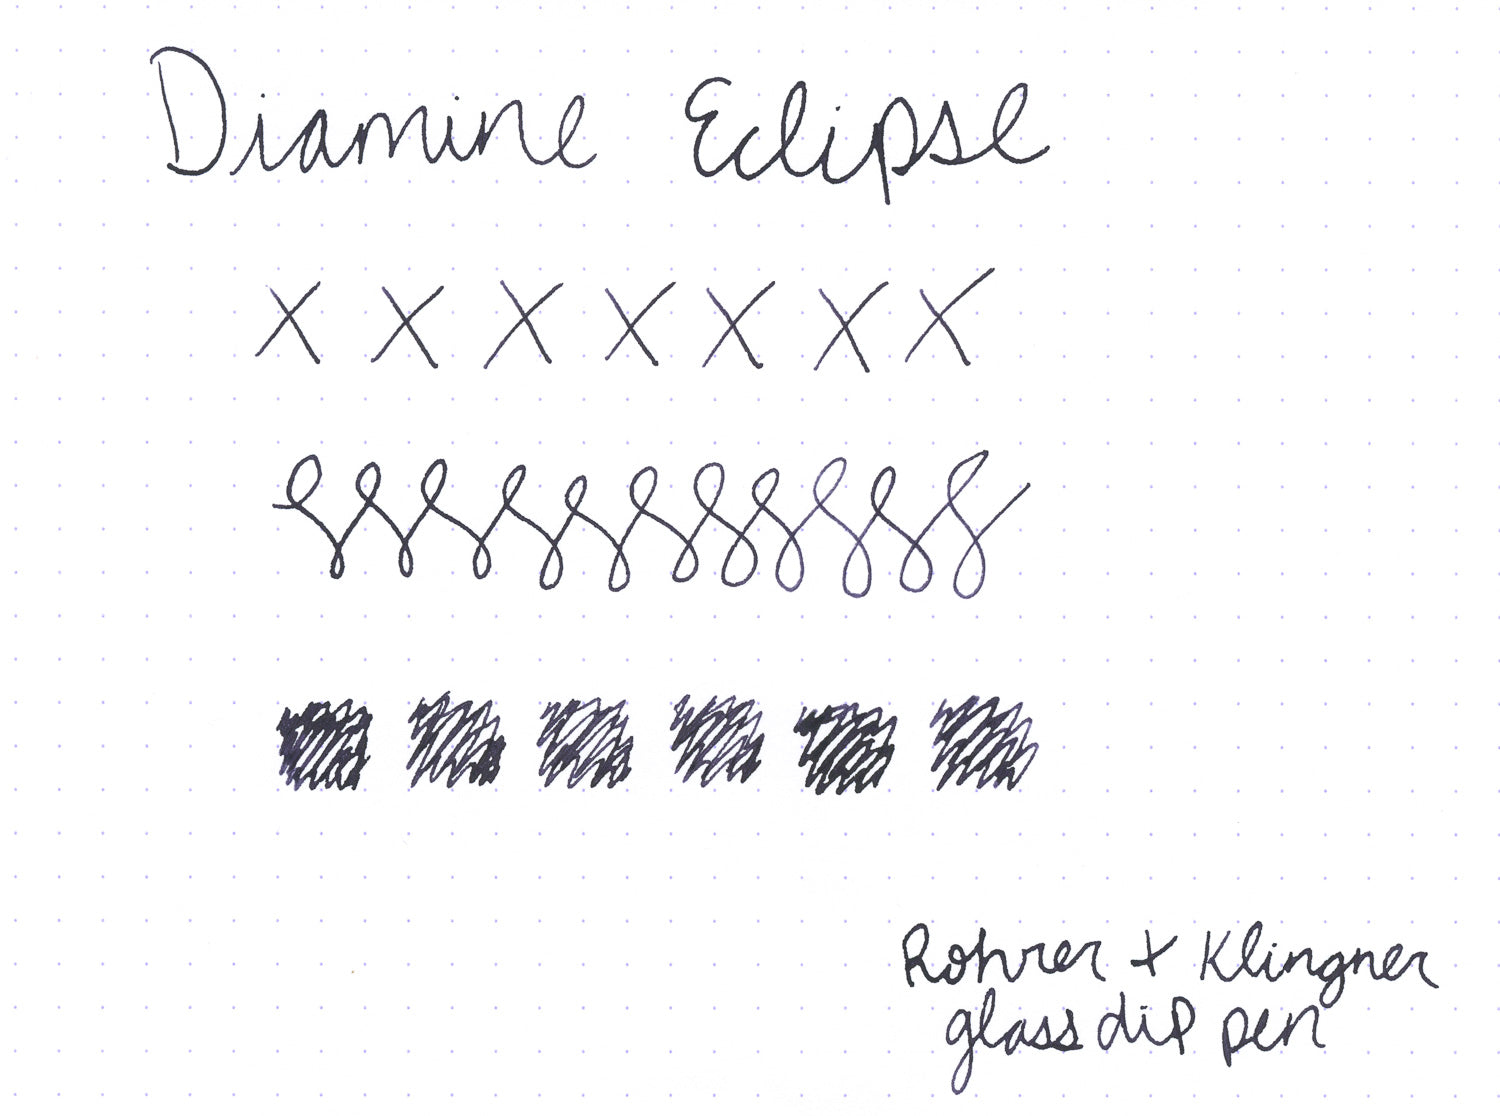 Diamine Eclipse
x x x x x x x
Rohrer + Klingner
glass dip pen